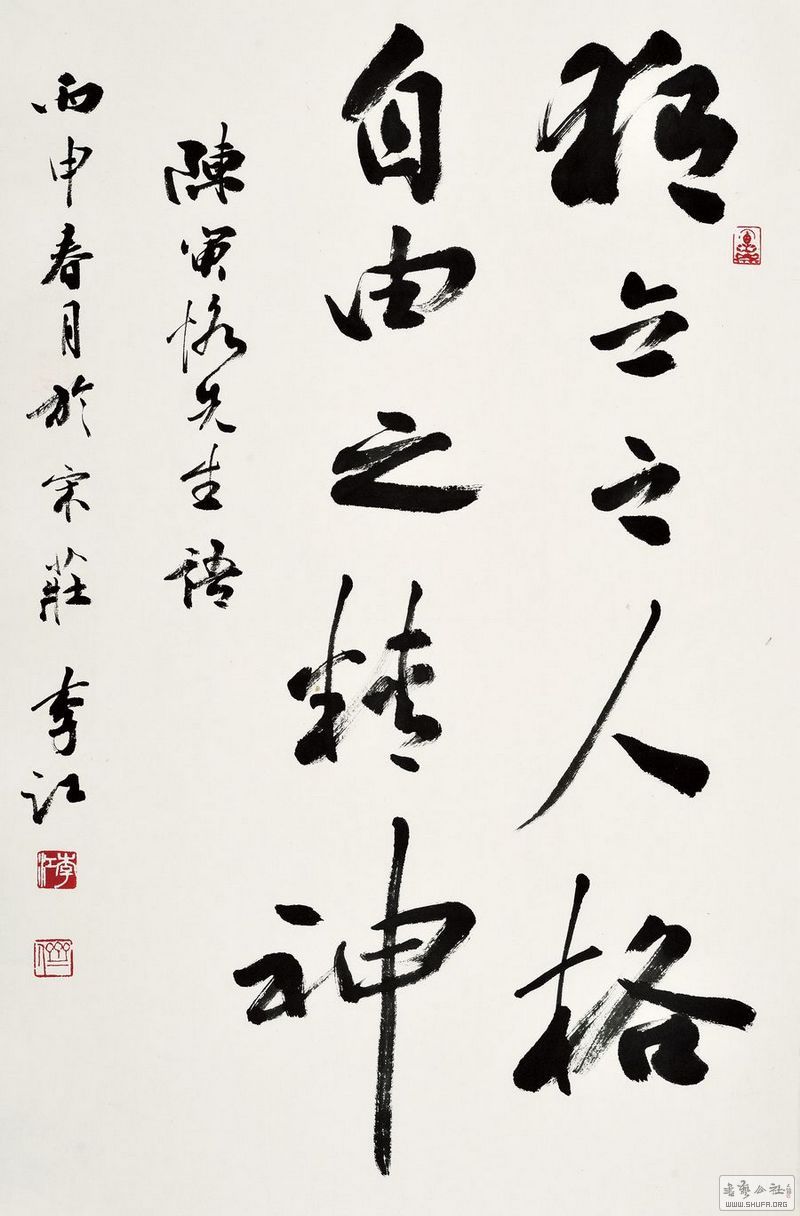 独立之人格
自由之精神
陳寅恪先生語
丙申春月於宋莊 李江
李江
WWW.SHUFA.ORG